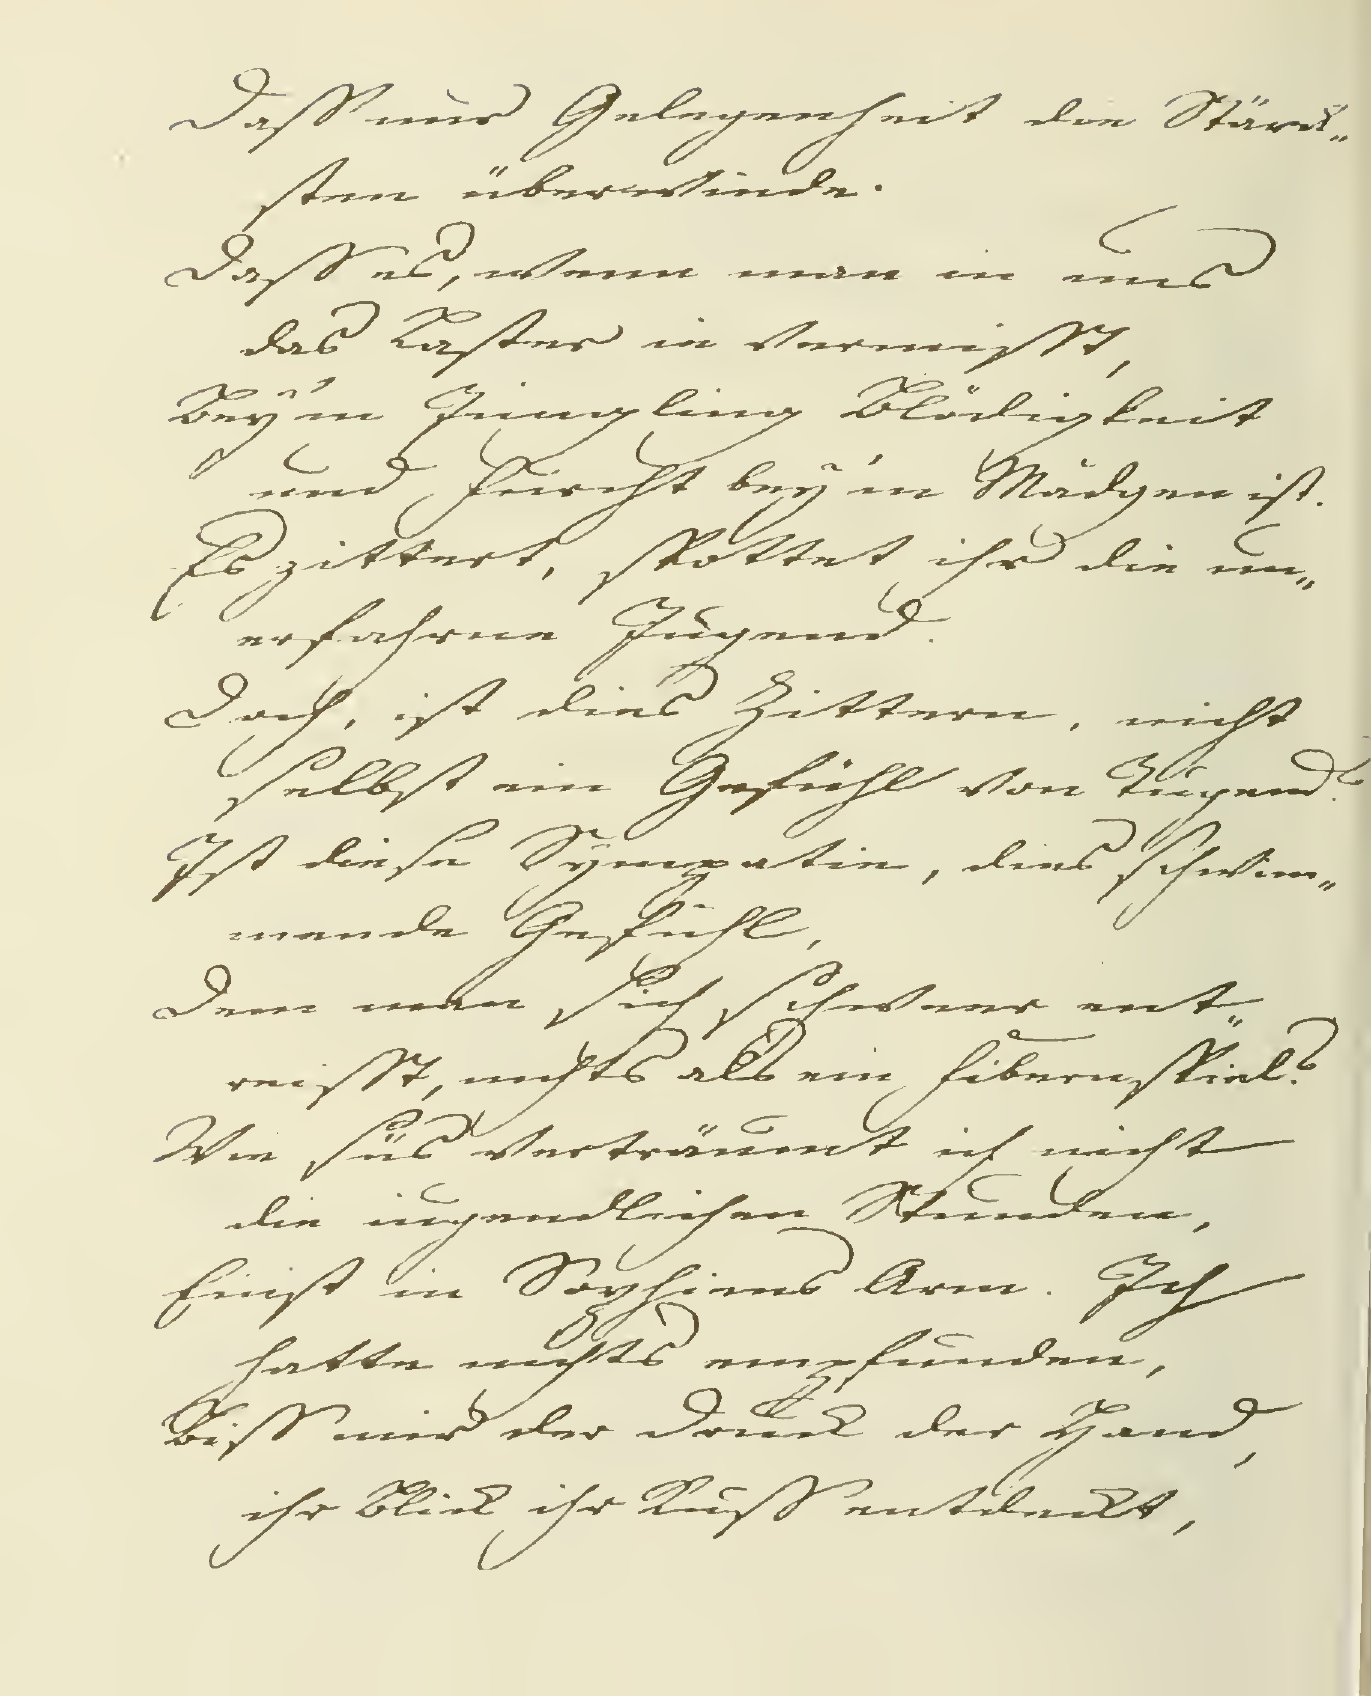 Dass nur Gelegenheit die Stärck„
sten überwinde.
Dass es, wenn man in uns
das Laster ia vermisst,
Bey'm Jüngling Blödigkeit
und Furcht bey'm Mädgen ist.
Es zittert, spottet ihr die un„
erfahrne Jugend.
Doch, ist dies Zittern, nicht
selbst ein Gefühl von Tugend?
Ist diese Sympatie, dies schwim„
mende Gefühl,
Dem man sich schweer ent„
reisst, nichts als ein Fibernspiel?
Wie süs verträumt ich nicht
die iugendlichen Stunden,
Einst in Sophiens Arm. Ich
hatte nichts empfunden,
Biss mir der Druck der Hand,
ihr Blick ihr Kuss entdeckt,